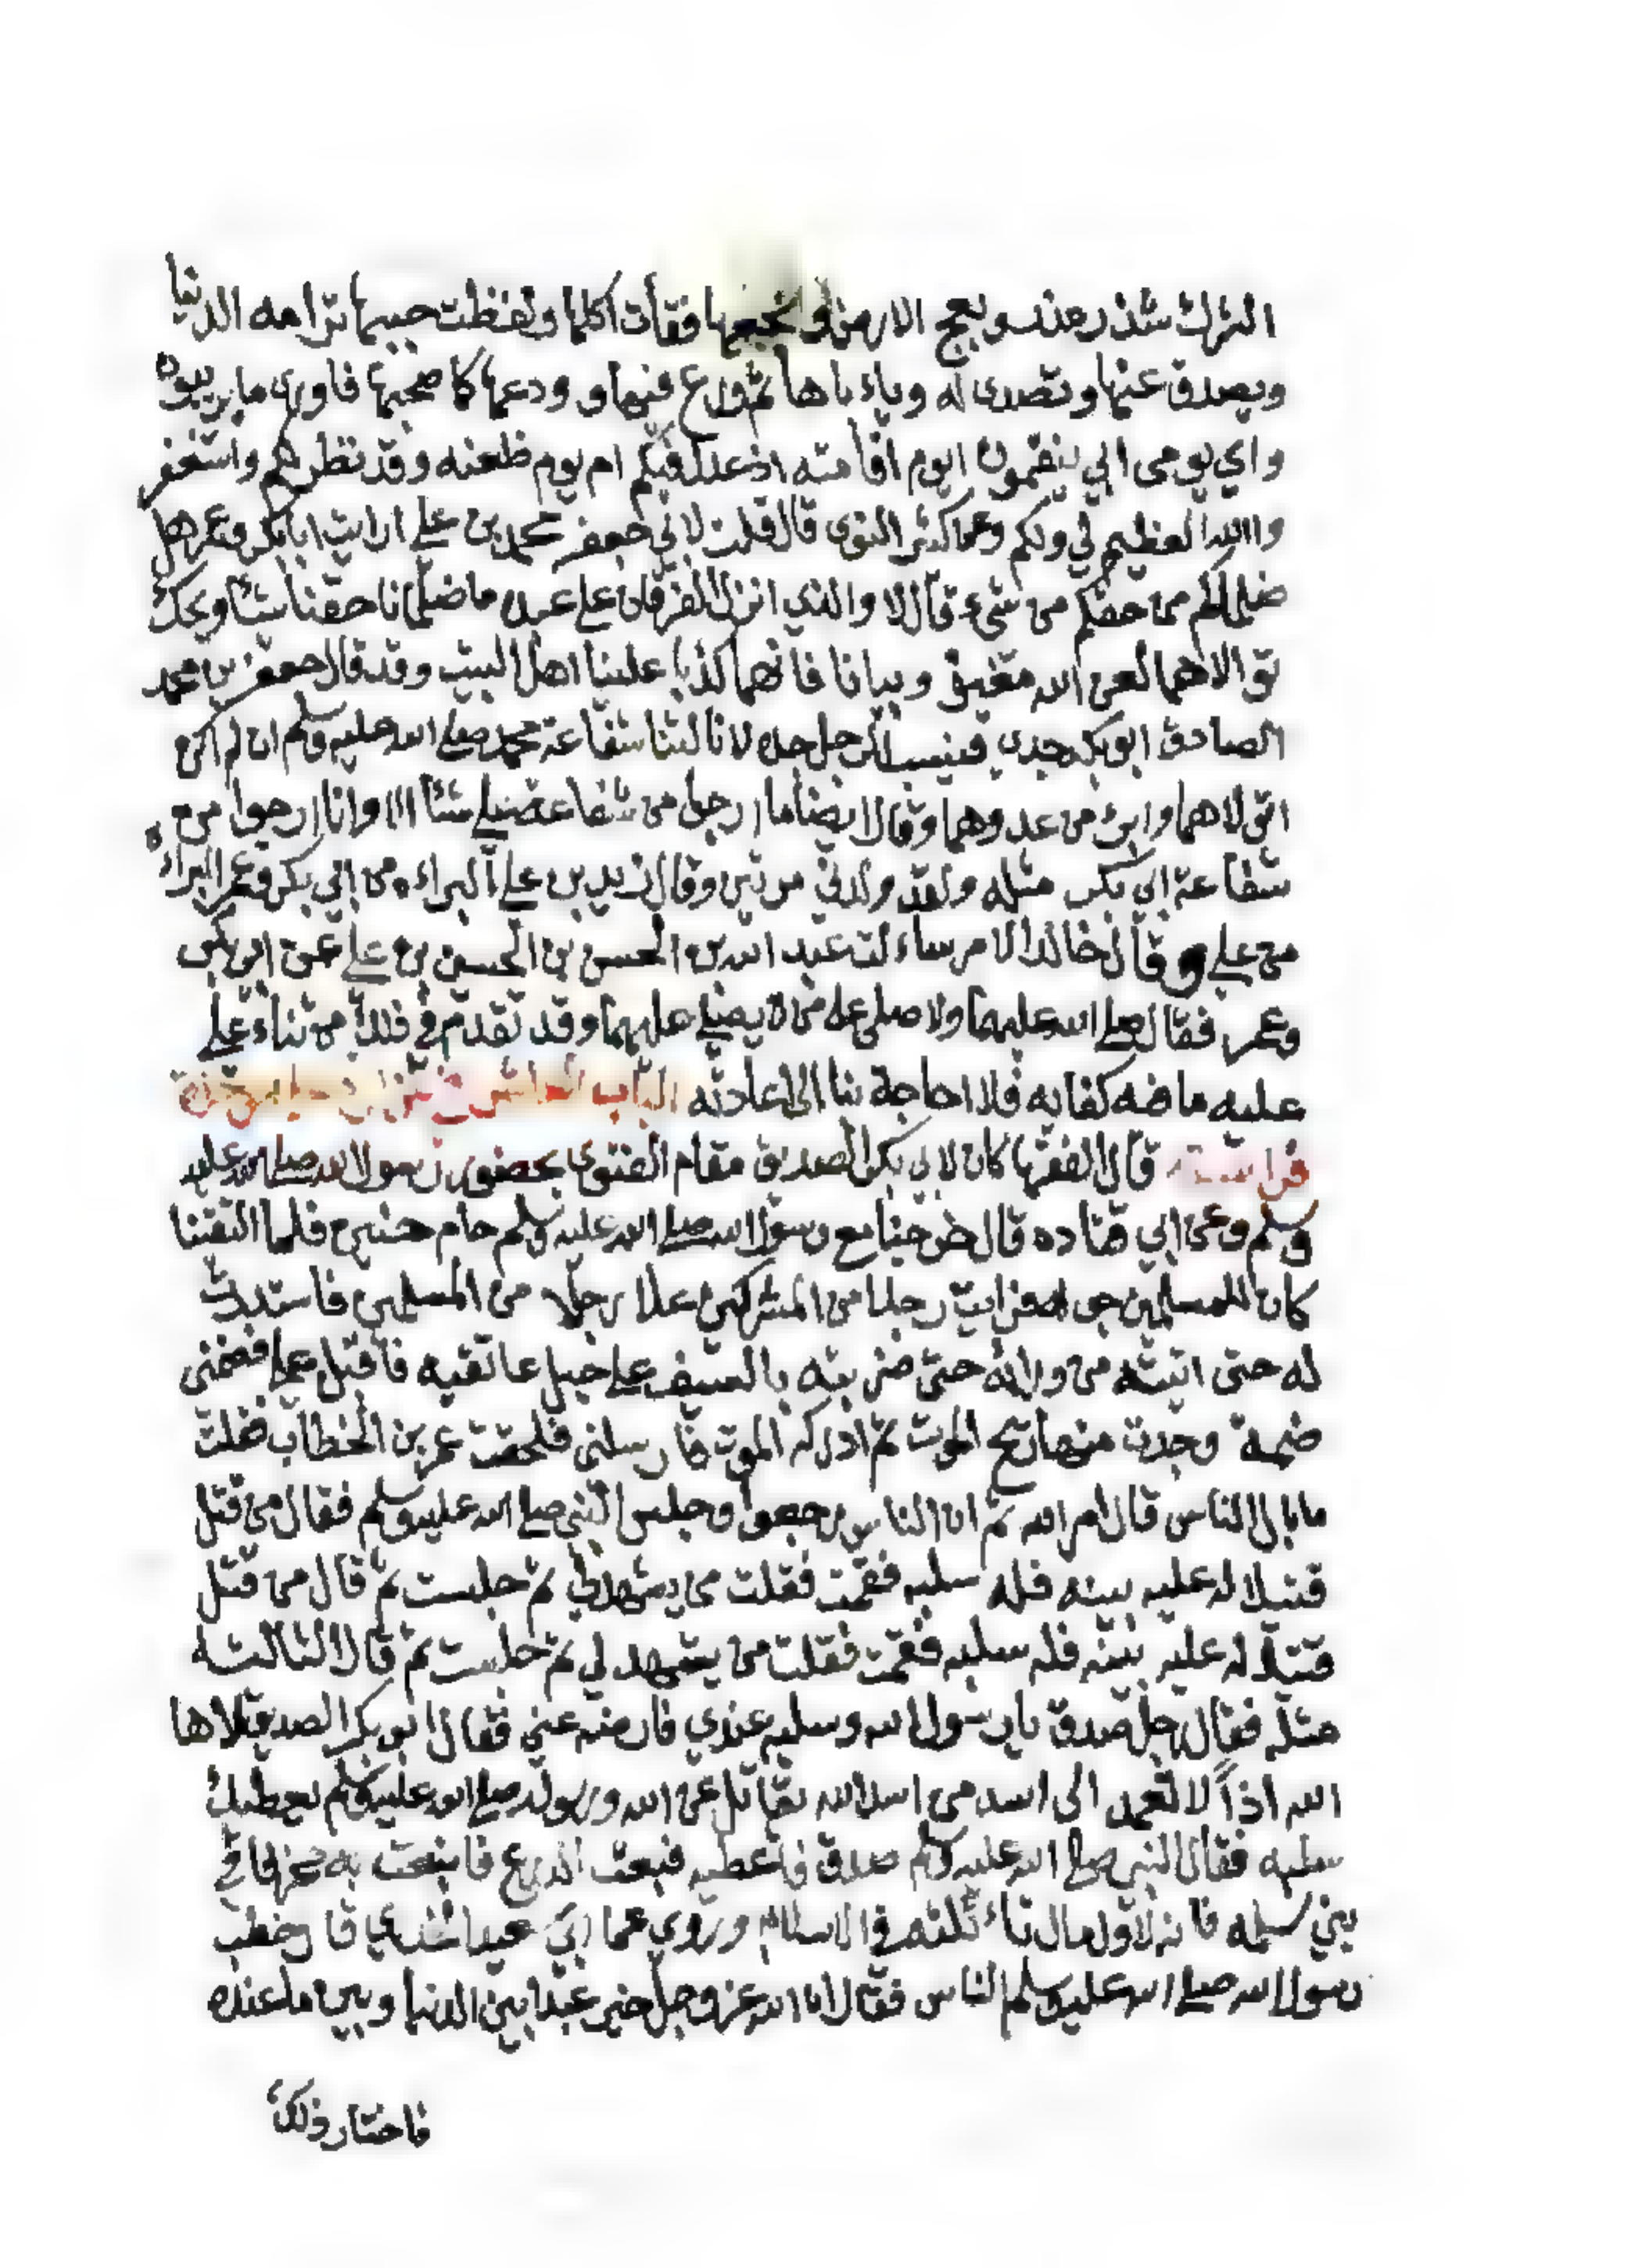 الشرك شذر مذر وبعج الارض وبخعها فقأت اكلها ولفظت خبيها ترامه الدنيا
ويصدف عنها وتصدى له وياباها ثم ورع فيها وودعها كما صحبها فاروني ما يريبون
واي يومي ابي ينقمون ايوم اقامته اذ عدل فيكم ام يوم ظعنه وقد نظر لكم واستغفر
الله العظيم لي ولكم وعن كثير النوى قال قلت لابي جعفر محمد بن علي ارايت ابابكر وعمر هل
ظلماكم من حقكم من شيء قال لا والذي انزل الفرقان على عبده ما ظلمانا حقنا شيئا ويحك
تولاهما لعن الله مغيرة وبيانا فانهما كذبا علينا اهل البيت وقد قال جعفر بن محمد
الصادق ابو بكر جدي فيسب الرجل جده لا نالتنا شفاعة محمد صلى الله عليه وسلم ان لم اكن
اتولاهما وابرئ من عدوهما وقال ايضا ما ارجوا من شفاعة علي شيئا الا وانا ارجوا من
شفاعة ابي بكر مثله ولقد ولدني مرتين وقال زيد بن علي البراءه من ابي بكر وعمر البراءه
من علي وقال خالد الامر سالت عبد الله بن الحسن بن الحسين بن علي عن ابي بكر
وعمر فقال صلى الله عليهما ولا صلى على من لا يصلي عليهما وقد تقدم في فلك من ثناء علي
عليه ما فيه كفايه فلا حاجة بنا الى اعادته الباب العاشر في
فراسته قال الفقها كان لابي بكر الصديق مقام الفتوى بحضور رسول الله صلى الله عليه
وسلم وعن ابي قتاده قال خرجنا مع رسول الله صلى الله عليه وسلم عام حنين فلما التقينا
كان للمسلمين جوله فرايت رجلا من المشركين علا رجلا من المسلمين فاستدرت
له حتى اتيته من ورائه حتى ضربته بالسيف على حبل عاتقيه فاقبل علي فضمني
ضمة وجدت منها ريح الموت ثم ادركه الموت فارسلني فلحقت عمر بن الخطاب فقلت
ما بال الناس قال امر الله ثم ان الناس رجعوا وجلس النبي صلى الله عليه وسلم فقال من قتل
قتيلا له عليه بينه فله سلبه فقمت فقلت من يشهد لي ثم جلست ثم قال من قتل
قتيلا له عليه بينه فله سلبه فقمت فقلت من يشهد لي ثم جلست ثم قال الثالثه
مثله فقال رجل صدق يا رسول الله وسلبه عندي فارضه عني فقال ابو بكر الصديق لاها
الله اذاً لا تعمد الى اسد من اسد الله يقاتل عن الله ورسوله صلى الله عليه وسلم يعطيك
سلبه فقال النبي صلى الله عليه وسلم صدق فاعطيه فبعت الدرع فابتعت به مخرفا في
بني سلمه فانه لاول مال تاثلته في الاسلام وروي عن ابي سعيد الخدري قال خطب
رسول الله صلى الله عليه وسلم الناس فقال ان الله عز وجل خير عبدا بين الدنيا وبين ما عنده
فاختار ذلك